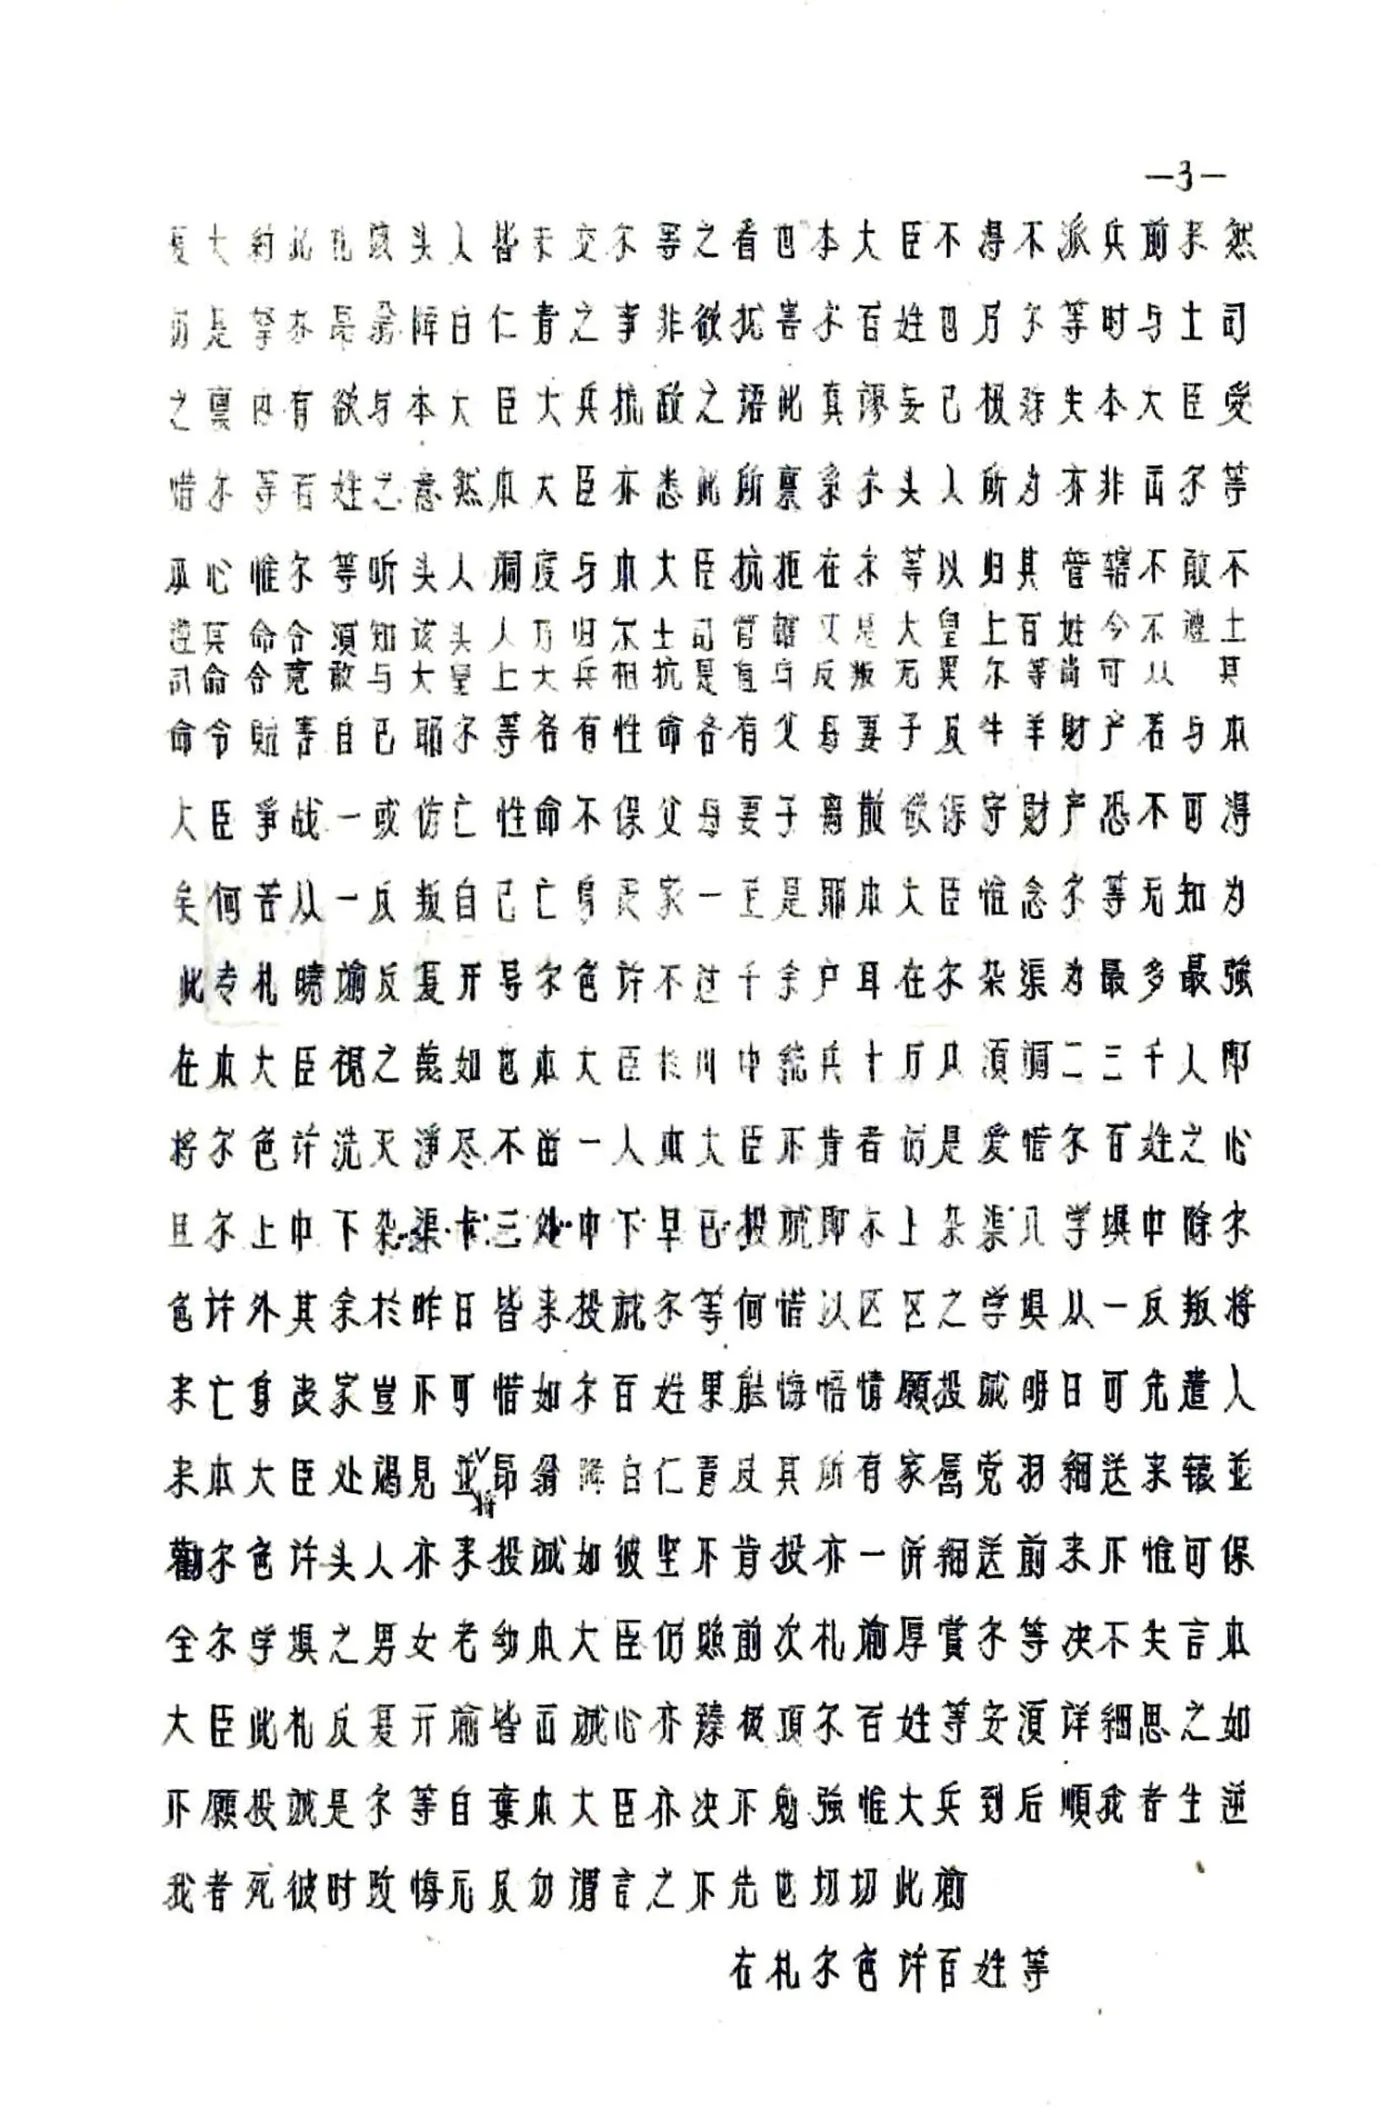 —3—
大 此札该头人皆未交尔等之看也本大臣不得不派兵前来然
仍是拿不昂翁降白仁青之事非欲扰害尔百姓也乃尔等时与土司
之禀内有欲与本大臣大兵抗敌之语此真谬妄已极殊失本大臣爱
惜尔等百姓之意然本大臣亦悉此所禀系尔头人所为亦非面尔等
本心惟尔等听头人调度与本大臣抗拒在尔等以归其管辖不敢不
遵其命令须知该头人乃归尔土司管辖又是大皇上百姓今不遵土
司命令竟敢与大皇上大兵相抗是直与反叛无异尔等尚可从其
命令贻害自己耶尔等各有性命各有父母妻子及牛羊财产若与本
大臣争战一或伤亡性命不保父母妻子离散欲保守财产恐不可得
矣何苦从一反叛自己亡身丧家一至是耶本大臣惟念尔等无知为
此专札晓谕反复开导尔色许不过千余户耳在尔杂渠为最多最强
在本大臣视之蔑如也本大臣于川中统兵十万只须调二三千人即
将尔色许洗灭净尽不留一人本大臣不肯者仍是爱惜尔百姓之心
且尔上中下杂渠卡三处中下早已投诚即尔上杂渠几学填中除尔
色许外其余于昨日皆来投诚尔等何惜以区区之学填从一反叛将
来亡身丧家岂不可惜如尔百姓果能悔悟情愿投诚明日可先遣人
来本大臣处谒见並将昂翁降白仁青及其所有家属党羽捆送来辕並
勸尔色许头人亦来投诚如彼坚不肯投亦一併捆送前来不惟可保
全尔学填之男女老幼本大臣仍照前次札谕厚赏尔等决不失言本
大臣此札反复开谕皆面诚心亦臻极顶尔百姓等安须详细思之如
不愿投诚是尔等自葉本大臣亦决不勉强惟大兵到后顺我者生逆
我者死彼时改悔无及勿谓言之不先也切切此谕
右札尔色许百姓等